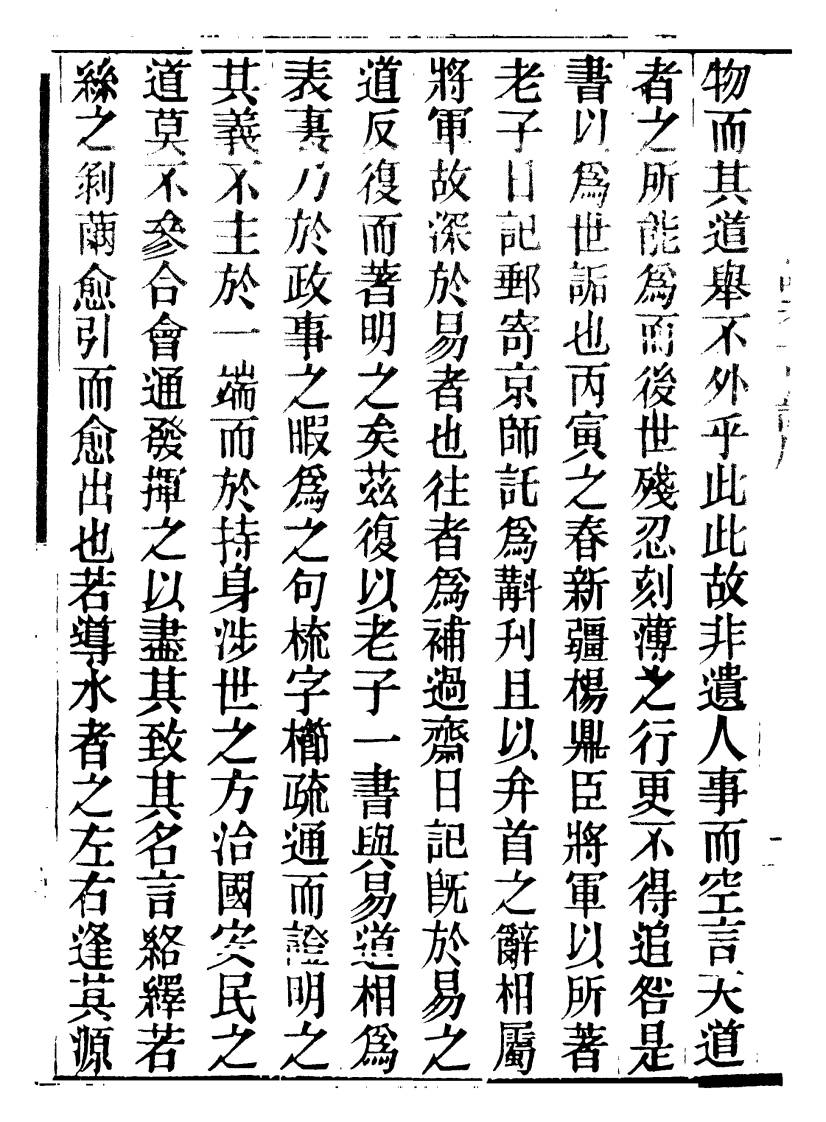 物而其道舉不外乎此此故非遺人事而空言天道
者之所能爲而後世殘忍刻薄之行更不得追咎是
書以爲世詬也丙寅之春新疆楊鼎臣將軍以所著
老子日記郵寄京師託爲斠刋且以弁首之辭相屬
將軍故深於易者也往者爲補過齋日記旣於易之
道反復而著明之矣茲復以老子一書與易道相爲
表裏乃於政事之暇爲之句梳字櫛疏通而證明之
其義不主於一端而於持身涉世之方治國安民之
道莫不參合會通發揮之以盡其致其名言絡繹若
絲之剝繭愈引而愈出也若導水者之左右逢其源